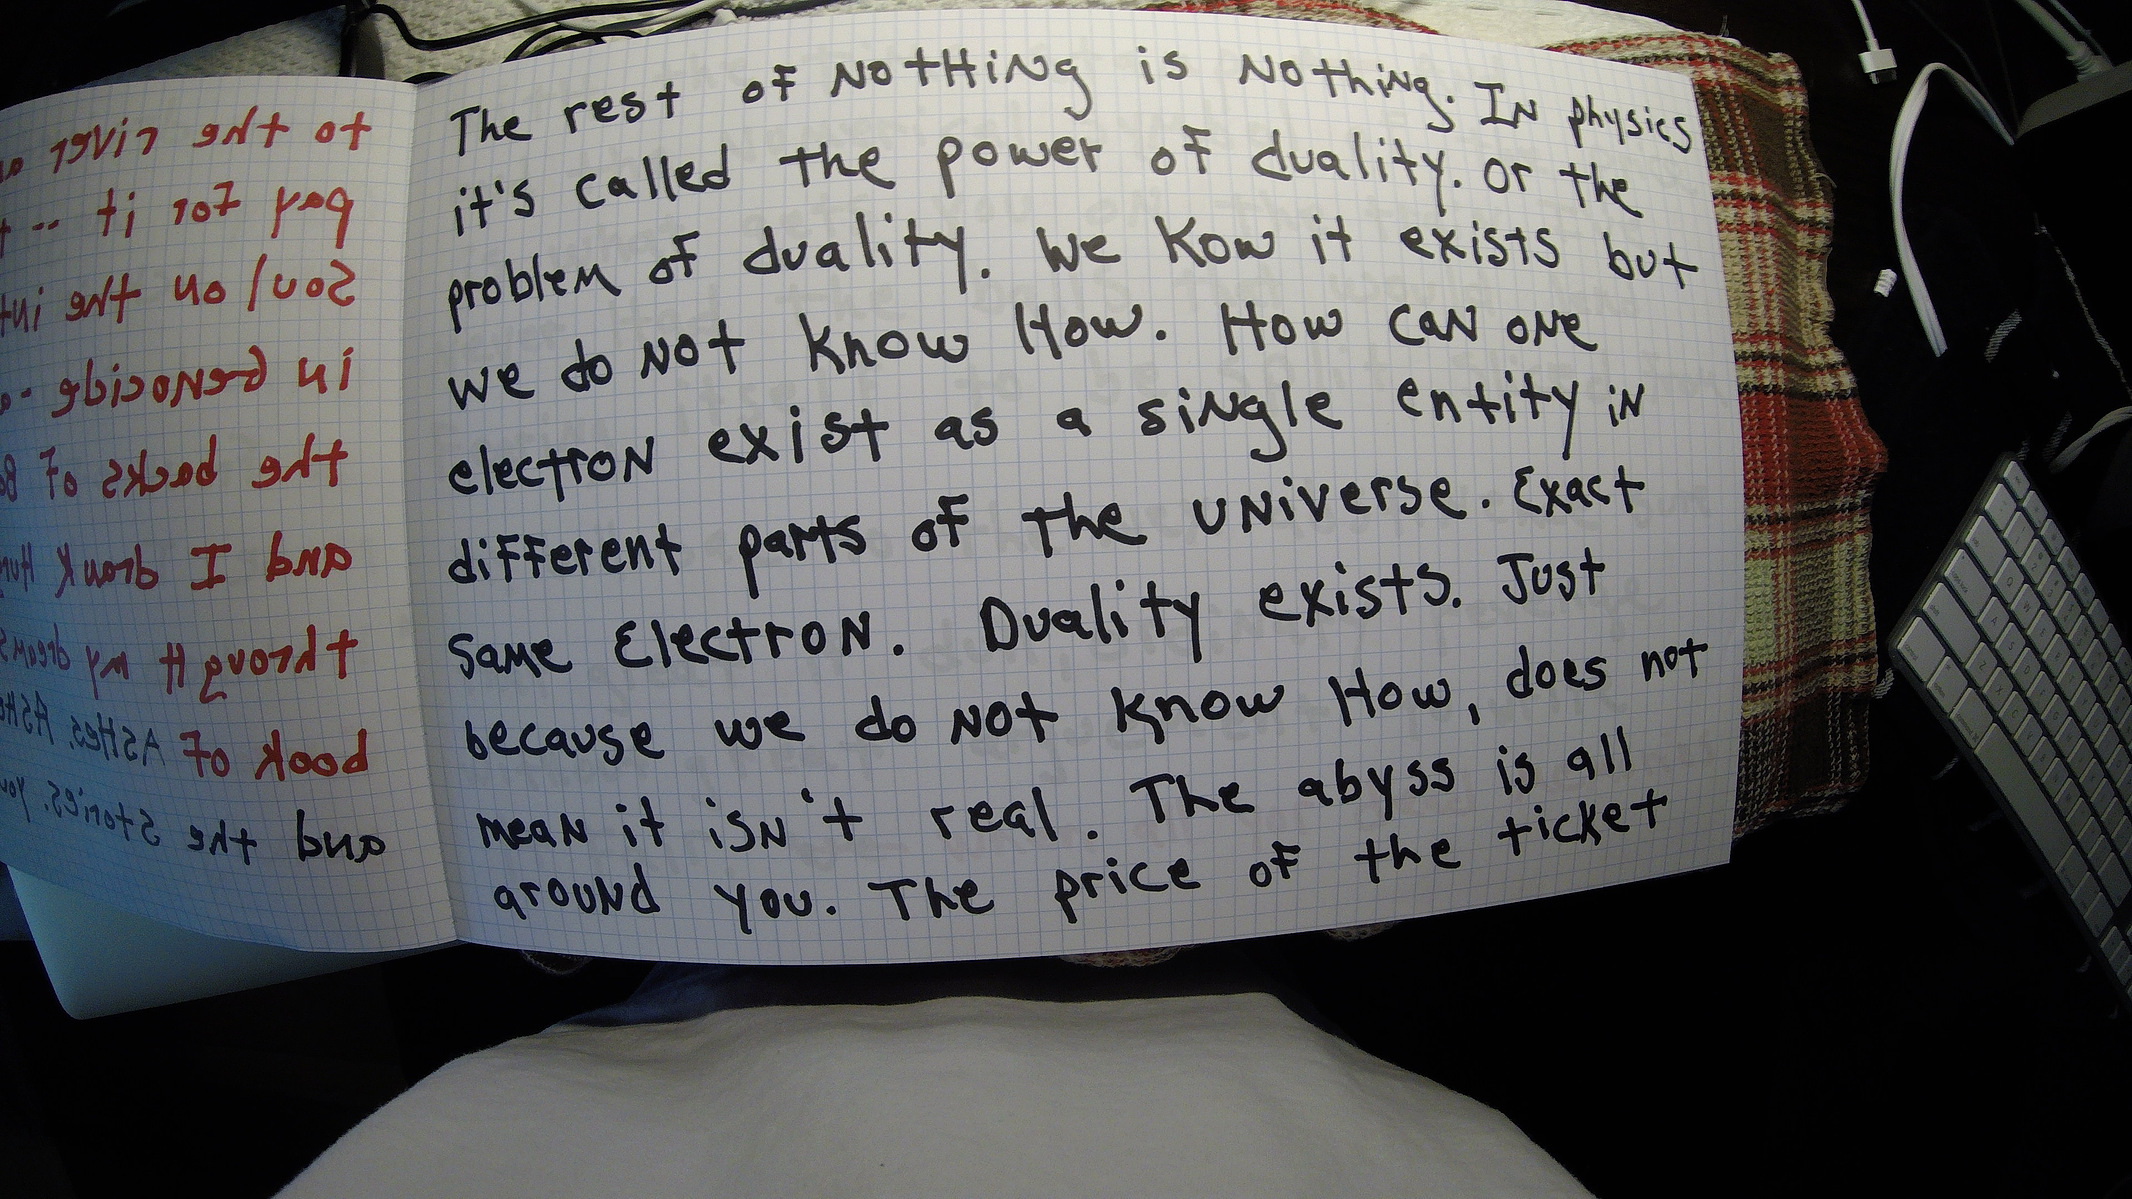 to the river
pay for it --
soul on the
in Genocide -
the backs of
and I drank
througH my dreams
book of AsHes.
and the stories. you
The rest of NotHiNg is Nothing. IN physics
it's called the power of duality. or the
problem of duality. we Kow it exists but
we do Not know How. How caN oNe
electroN exist as a siNgle entity iN
different parts of the uNiverse. Exact
same ElectroN. Duality exists. Just
because we do Not know How, does not
meaN it isN't real. The abyss is all
arouNd you. The price of the ticket